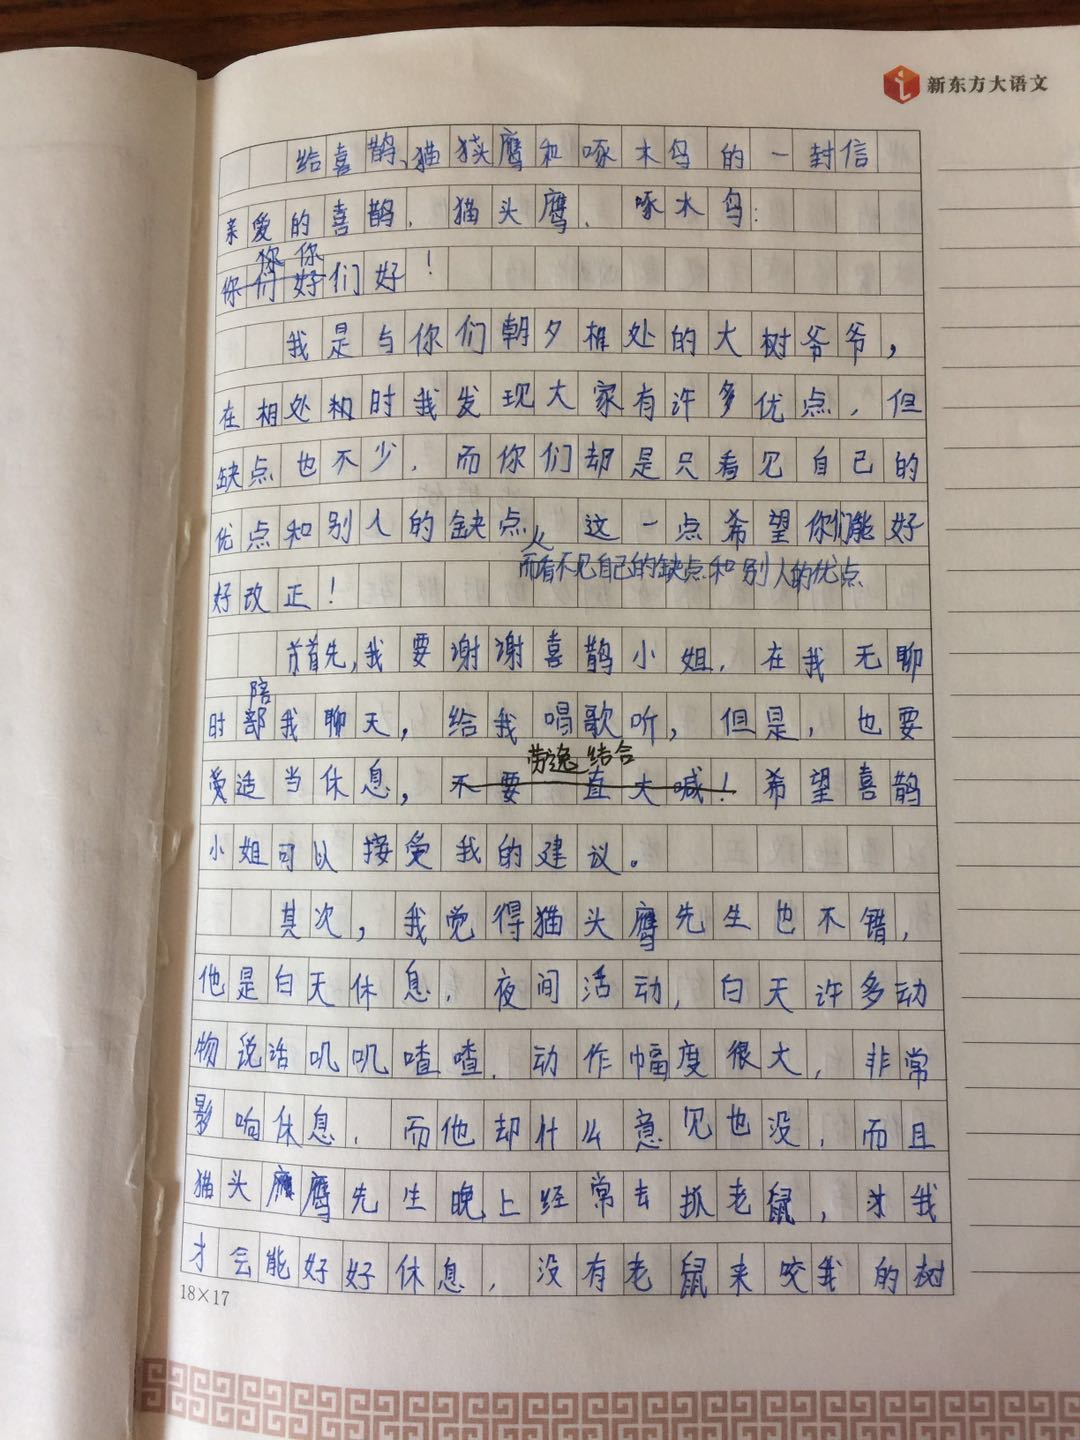 新东方大语文
给喜鹊、猫头鹰和啄木鸟的一封信
亲爱的喜鹊、猫头鹰、啄木鸟:
你你
你们好们好!
我是与你们朝夕相处的大树爷爷,
在相处和时我发现大家有许多优点,但
缺点也不少,而你们却是只看见自己的
优点和别人的缺点,这一点希望你们能好
而看不见自己的缺点和别人的优点
好改正!
首先,我要谢谢喜鹊小姐,在我无聊
陪
时部我聊天,给我唱歌听,但是,也要
劳逸结合
适当休息,不要一直大喊!希望喜鹊
小姐可以接受我的建议。
其次,我觉得猫头鹰先生也不错,
他是白天休息,夜间活动,白天许多动
物说话叽叽喳喳,动作幅度很大,非常
影响休息,而他却什么意见也没,而且
猫头鹰先生晚上经常去抓老鼠,我
才会能好好休息,没有老鼠来咬我的树
18×17